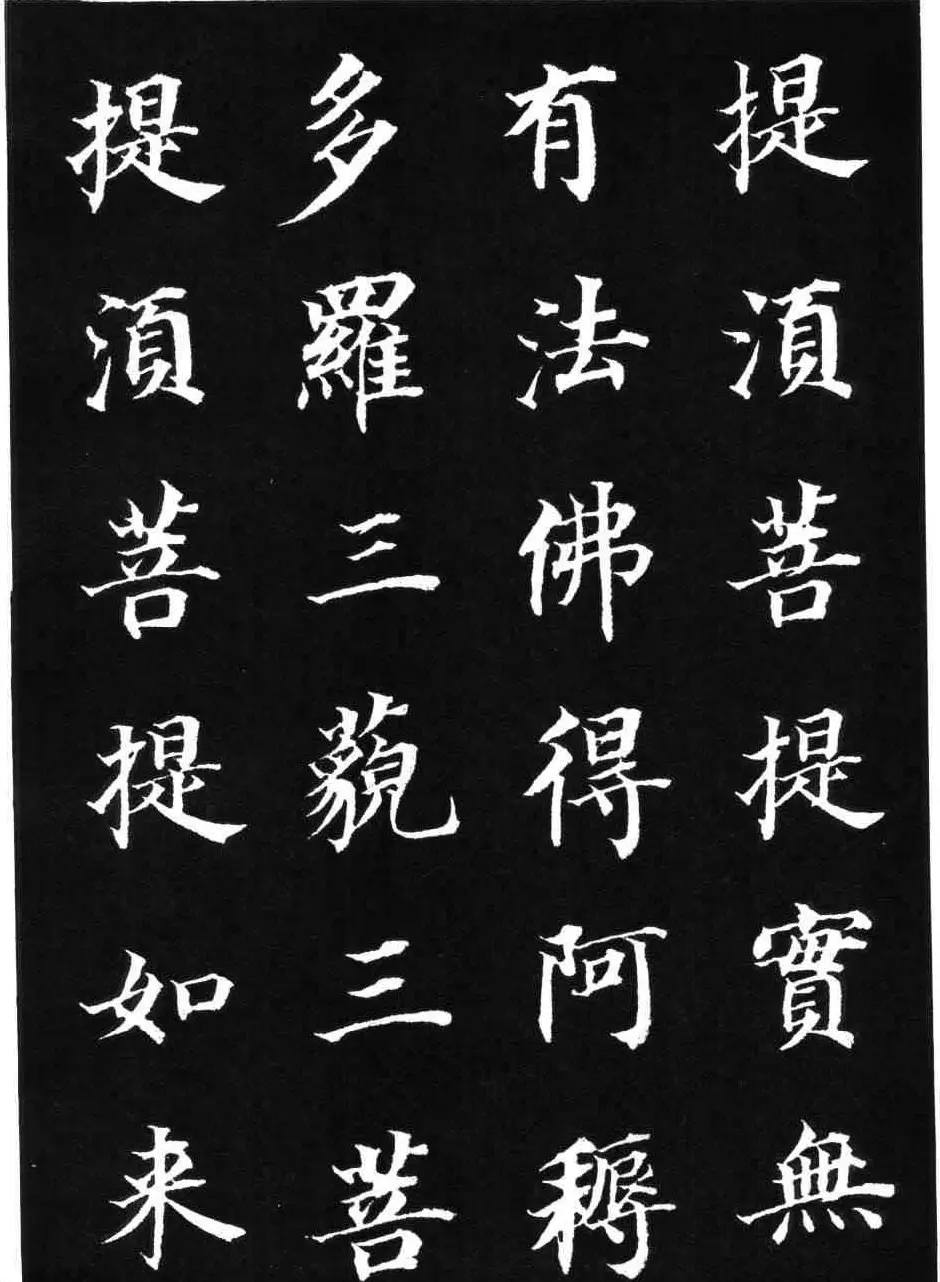 提湏菩提實無
有法佛得阿耨
多羅三藐三菩
提湏菩提如来